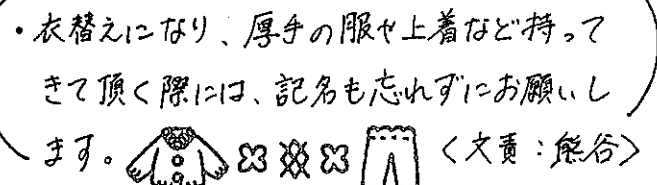 ・衣替えになり、厚手の服や上着など持って
きて頂く際には、記名も忘れずにお願いし
ます。 〈文責：熊谷〉